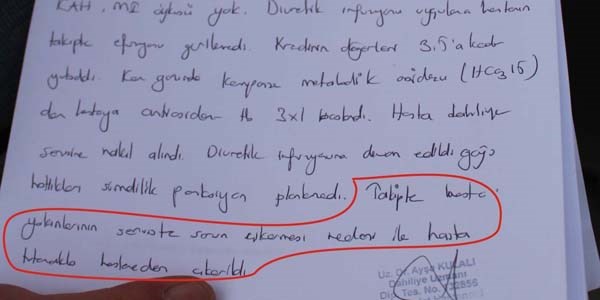 KAH, MI öyküsü yok. Diüretik infüzyonu uygulanan hastanın
takipte efüzyonu geriledi. Kreatinin değerleri 3,5'a kadar
yükseldi. Kan gazında kompanse metabolik asidozu (HCO3 15)
3x1 başlandı. Hasta dahiliye
servisine nakil alındı. Diüretik infüzyonuna devam edildi göğüs
hastalıkları şimdilik ponksiyon planlamadı. Takipte hasta
yakınlarının serviste sorun çıkarması nedeni ile hasta
hastaneden çıkarıldı.
Uz. Dr. Ayşe KULALI
Dahiliye Uzmanı
Dip. Tes. No.